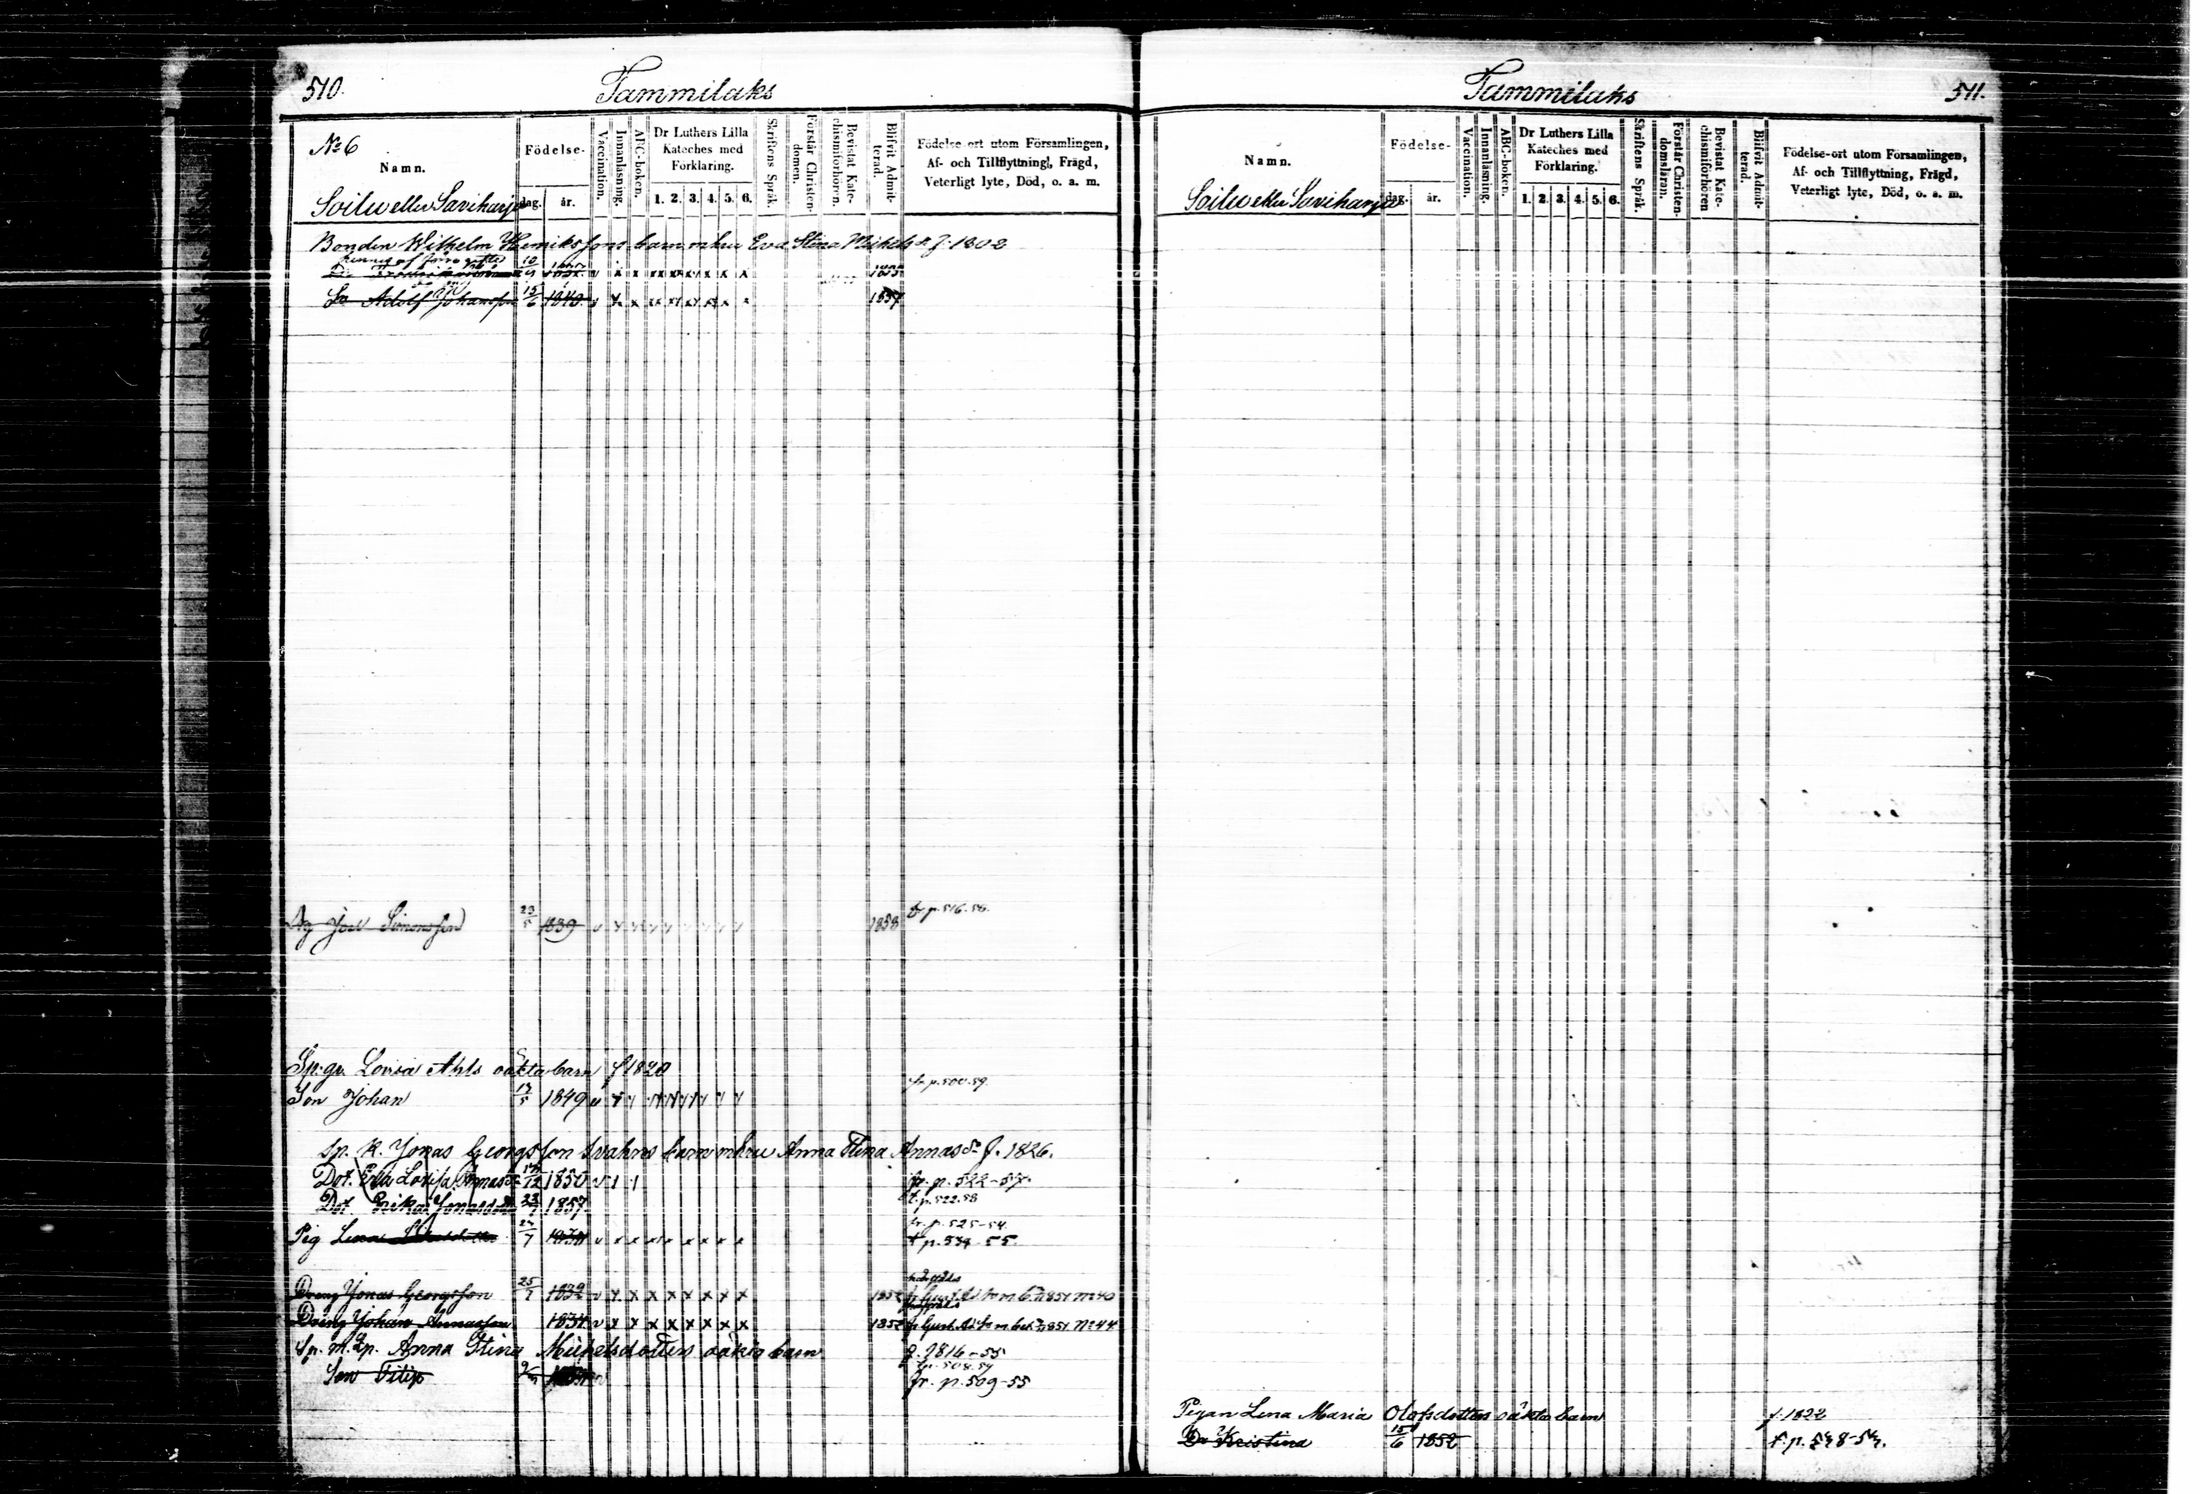 510.
Tammilaks
No 6
Namn.
Soilu eller Saviharju
Födelse-
dag.
år.
Vaccination.
Innanläsning.
ABC-boken.
Dr Luthers Lilla
Kateches med
Förklaring.
1. 2. 3. 4. 5. 6.
Skriftens Språk.
Förstår Christen-
domen.
Bevistat Kate-
chismiförhören.
Blifvit Admit-
terad.
Födelse-ort utom Församlingen,
Af- och Tillflyttning, Frägd,
Veterligt lyte, Död, o. a. m.
Bonden Wilhelm Henrikssons barn m hu Eva Stina f. 1802
hennes af förra giftet
10/9 1855
So Adolf Johansson 15/6 1840 v x x x x x x x x 1857
Joel Simonsson 23/5 1839 v 1858 fr p. 516. 58.
Sp: qv. Lovisa Ahls oäkta barn f 1820
Son Johan 17/5 1849 v fr p. 500. 59.
Sp. k. Jonas Georgsson barn m hu Anna Stina Annasdr f. 1826.
Dot. Eva Lovisa Annasdr /12 1850 v fr. p. 522-57.
Dot. Erika Jonasdr 23/7 1857 t. p. 522. 58
Pig Lena 27/7 v x x x x x x x x fr. p. 525-54.
t p. 534 55.
Dreng Jonas Georgsson 25/7 1832 v x x x x x x x x 1852 1851 No 40
Dreng Johan Annasson 1834 v x x x x x x x x 1852 1851 No 44
Sp. m. Anna Stina Michelsdotters oäkta barn f. 1816-55
Son Filip t p. 508. 59
fr. p. 509-55
Tammilaks
511.
Namn.
Soilu eller Saviharju
Födelse-
dag.
år.
Vaccination.
Innanläsning.
ABC-boken.
Dr Luthers Lilla
Kateches med
Förklaring.
1. 2. 3. 4. 5. 6.
Skriftens Språk.
Förstår Christen-
domsläran.
Bevistat Kate-
chismiförhören
Blifvit Admit-
terad.
Födelse-ort utom Församlingen,
Af- och Tillflyttning, Frägd,
Veterligt lyte, Död, o. a. m.
Pigan Lena Maria Olofsdotters oäkta barn f. 1822
Dr Kristina 15/6 1852 t. p. 548-54.